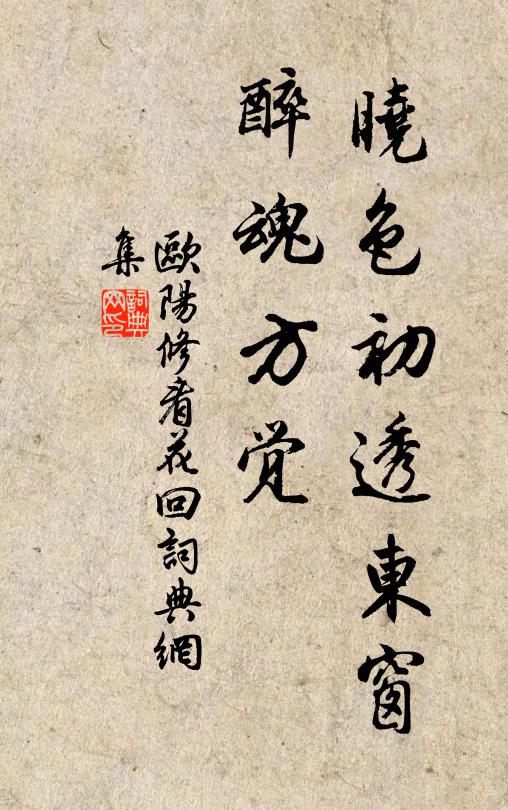 曉色初透東窗
醉魂方觉
歐陽修看花回詞典網
集
詞典
网印